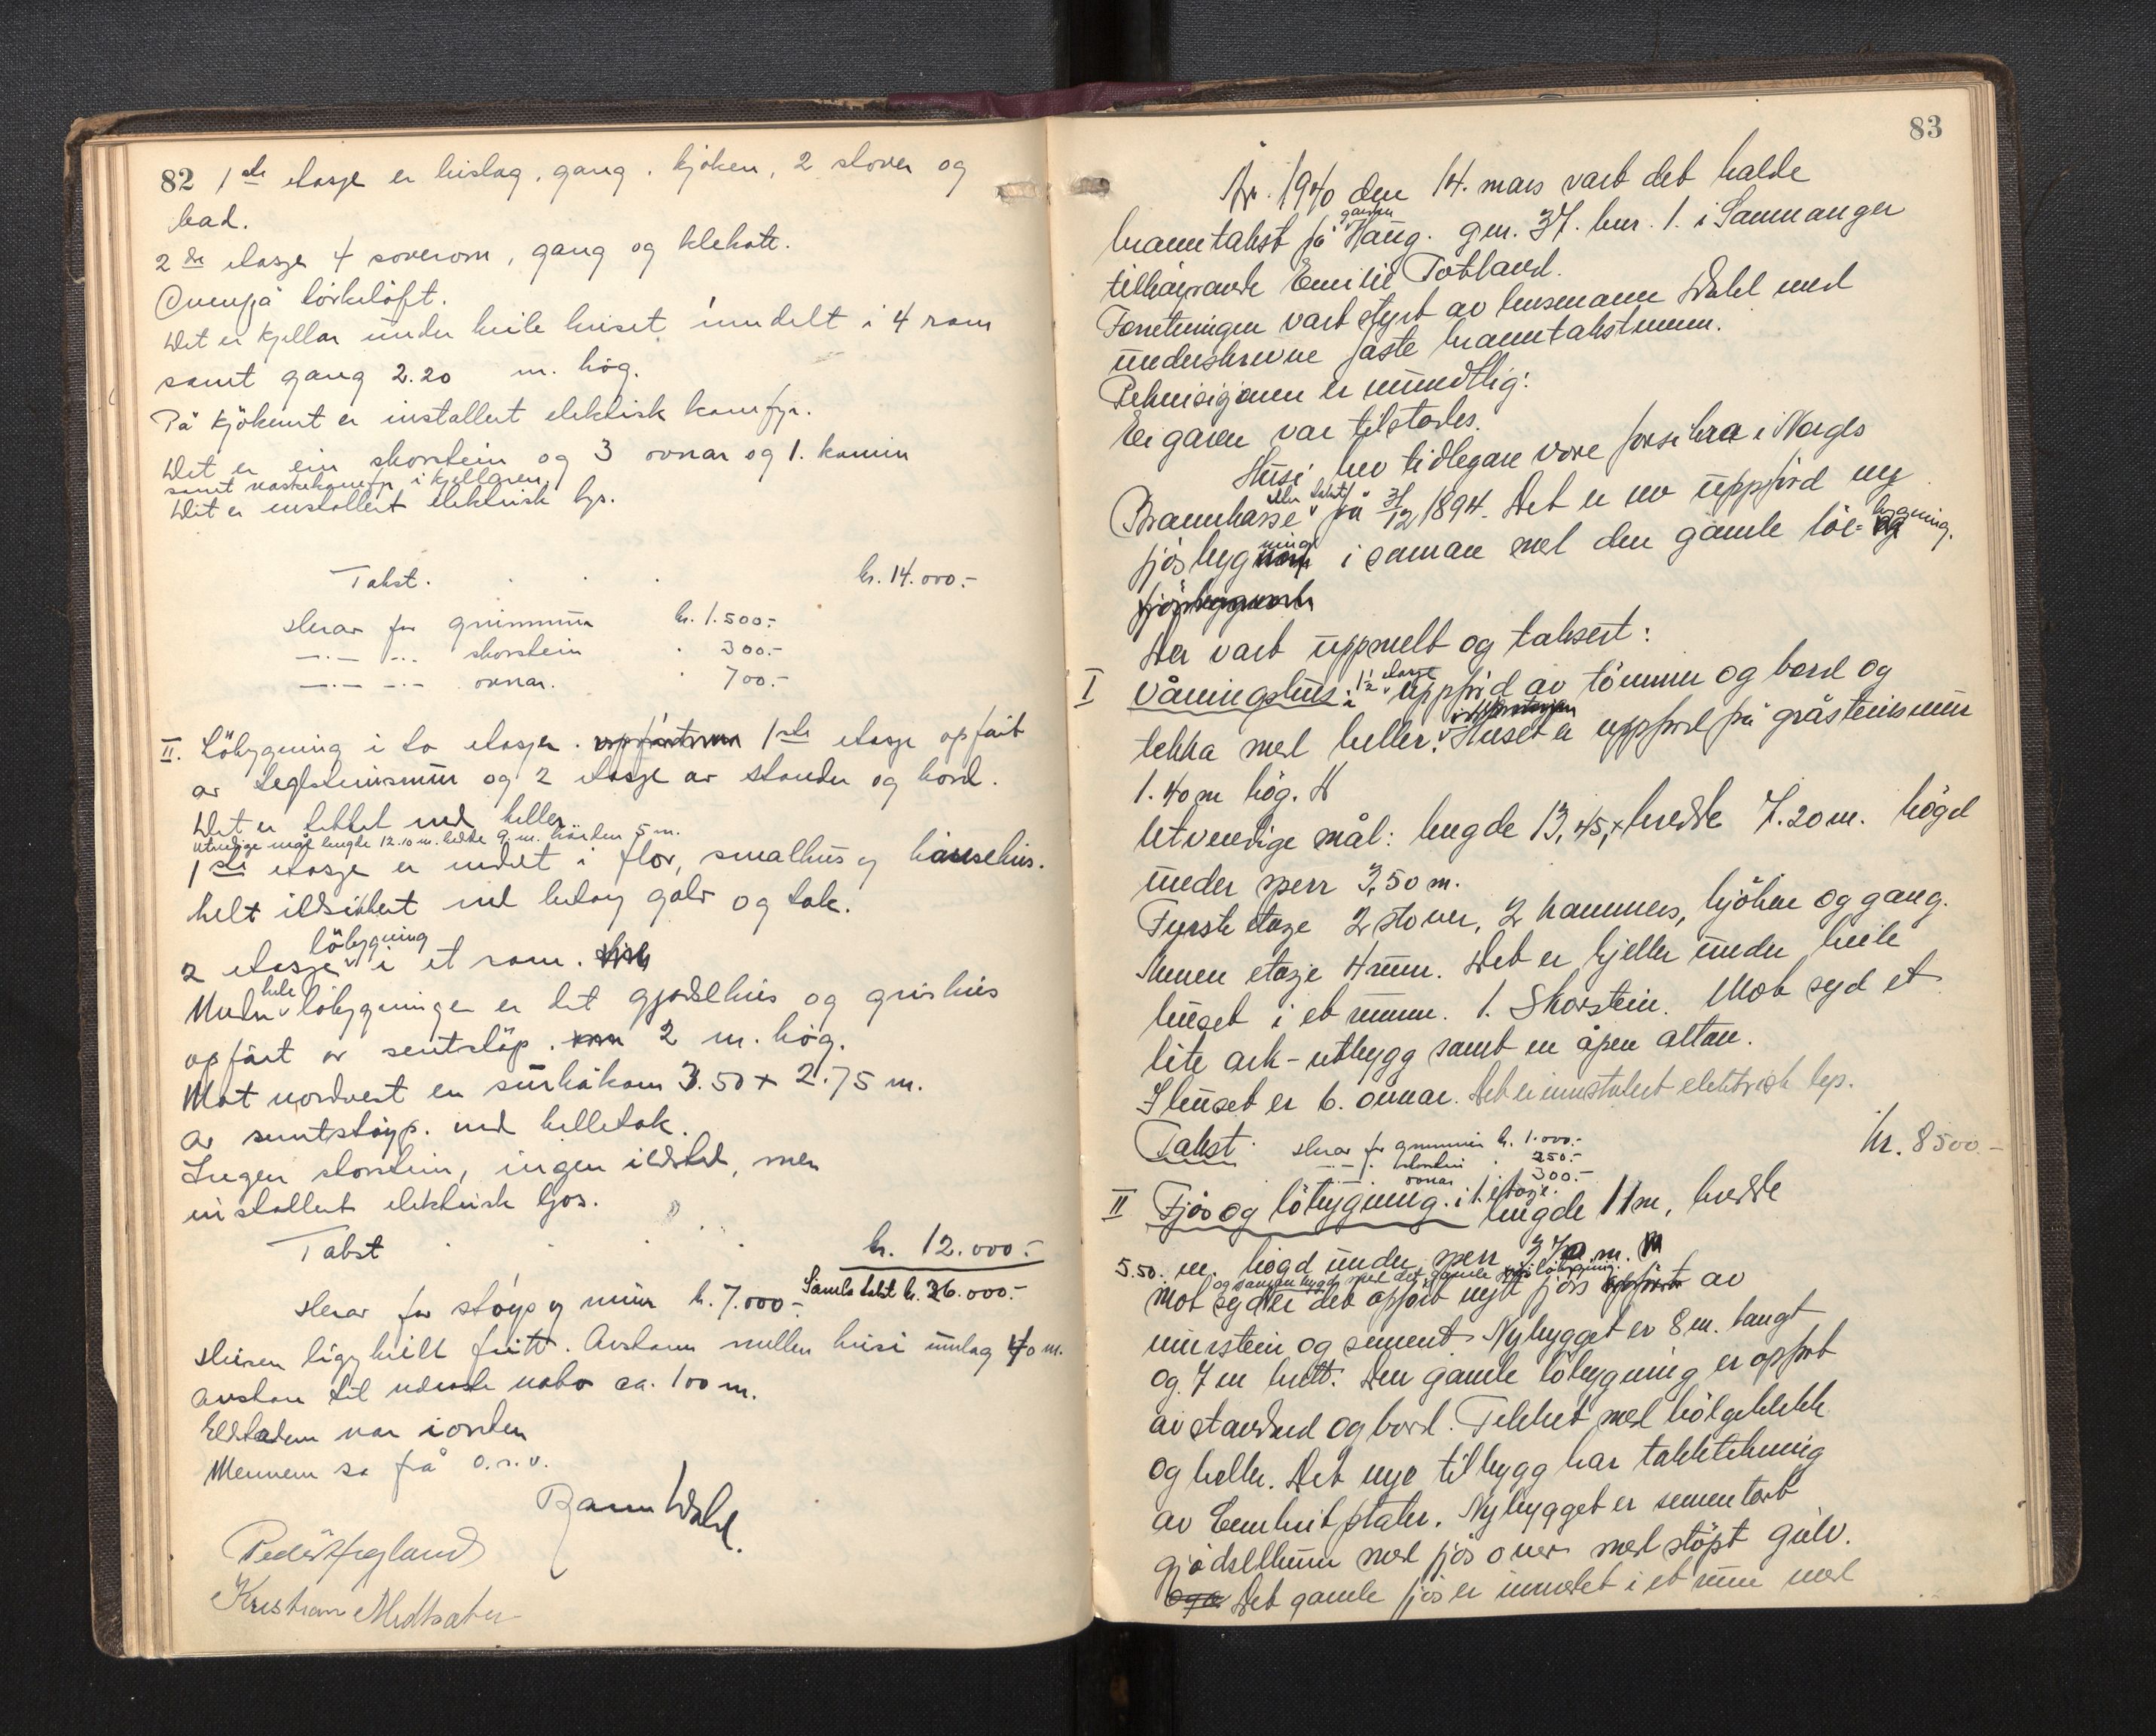 82 1ste etasje er bislag, gang, kjøken, 2 stover og
bad.
2dre etasje 4 soverom, gang og klekott.
Ovenpå törkeloft.
Det er kjellar under heile huset inndelt i 4 rom
samt gang 2.20 m. hög.
På kjökenet er installert elektrisk komfyr.
Det er ein skorstein og 3 ovnar og 1. kamin
samt vaskekomfyr i kjellaren.
Det er installert elektrisk lys.
Takst. kr. 14.000.-
Herav for grunnmur kr. 1.500.-
—.— —.— skorstein 300.-
—.— —.— ovnar. 700.-
II. Löbygning i to etasjer. 1ste etasje opfört
av teglsteinsmur og 2 etasje av stender og bord.
Det er tekket med heller.
Utvendige mål lengde 12.10 m. bredde 9 m. höiden 5 m.
1ste etasje er indret i flor, smalhus og hönsehus.
helt ildsikkert med betong golv og tak.
2 etasje löbygning i et rom.
Under hele löbygningen er det gjödselhus og grishus
opfört av sementstöp. 2 m. hög.
Mot nordvest en surhåkom 3.50 x 2.75 m.
av sementstöyp. med helletak.
Ingen skorstein, ingen ildsted, men
installert elektrisk ljos.
Takst kr. 12.000.-
Samla takst kr. 26.000.-
Herav for stöyp og mur kr. 7.000.-
Husen ligg heilt fritt. Avstann mellem husi innlag 40 m.
Avstan til næraste nabo ca. 100 m.
Eldstadene var i orden
Mennene sa frå o.s.v.
Peder Aegland
Kristian Medtsæter
83
År 1940 den 14. mars vart det halde
branntakst på garden Haug. gnr. 37. bnr. 1. i Samnanger
tilhøyrande Emilie Totland.
Forretningen vart styrt av lensmann Dahl med
underskrevne faste branntakstmenn.
Rekvisisjonen er mundtlig:
Eigaren var tilstades.
Husi hev tidlegare vore forsikra i Norges
Brannkasse etter takst på 31/12 1894. Det er no uppförd ny
fjösbygning i saman med den gamle löe-bygning.
Der vart uppmelt og taksert:
I Våningshus i 1½ etasje uppförd av tömmer og bord og
tekka med heller. Huset er uppförd på gråsteinsmur
1.40 m hög.
Utvendige mål: lengde 13,45, x bredde 7.20 m. högd
under sperr 3,50 m.
Fyrste etage 2 stover, 2 kammers, kjöken og gang.
Annen etasje 4 rum. Det er kjeller under heile
huset i et rumm. 1. Skorstein. Mot syd et
lite ark-utbygg samt en åpen altan.
I huset er 6. ovnar. Det er innstalert elektrisk lys.
Takst. Herav for grunnmur kr. 1.000.- kr. 8500.-
—.— skorstein 250.-
—.— ovnar 300.-
II Fjös og löbygning. i 1. etasje. lengde 11 m, bredde
5.50. m. högd under sperr 3,70 m.
og samanbygd med det gamle löbygning.
Mot syd er det opfört nytt fjös av
murstein og sement. Nybygget er 8 m. langt
og 7 m brett. Den gamle löbygning er opfört
av stavverk og bord. Tekket med bölgeblekk
og heller. Det nye tilbygg har taktekning
av Eternitplater. Nybygget er sementert
gjödselkum med fjös over med stöpt gulv.
Det gamle fjös er innredet i et rum med